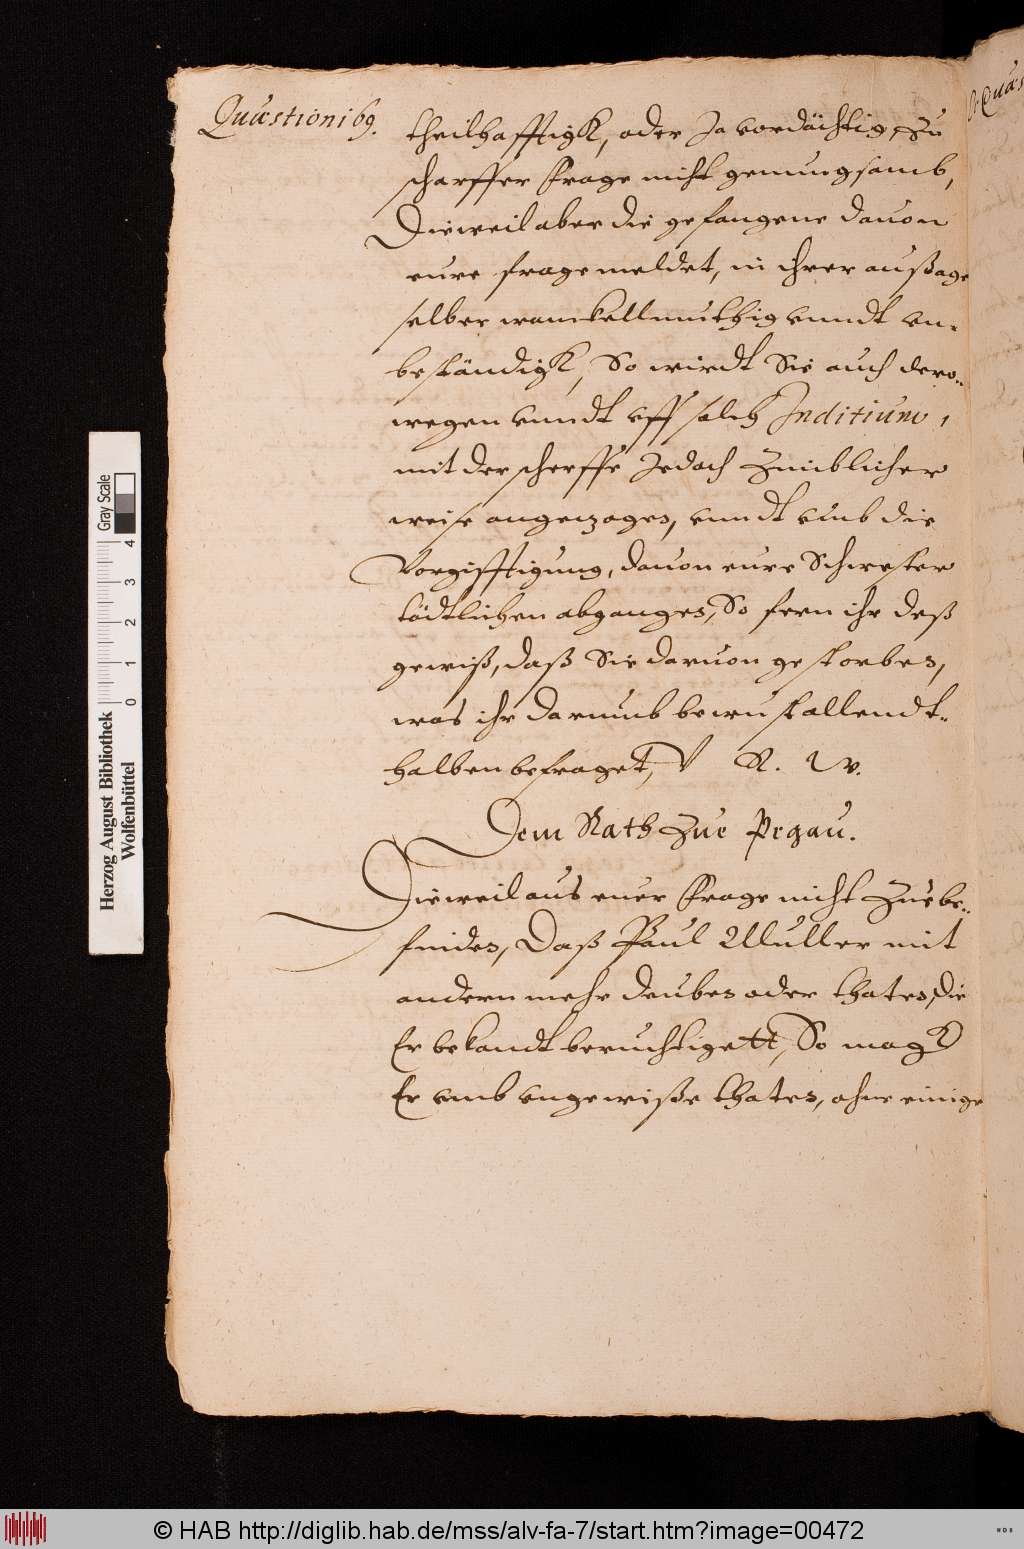 Quæstioni 69.
theilhafftigk, oder Ja vordächtig, zu
scharffer frage nicht genungsamb,
Dieweil aber die gefangene dauon
eure frage meldet, in ihrer außage
selber wanckellmuthig vnndt vn-
beständigk, So wirdt Sie auch dero-
wegen vnndt vff solch Inditium,
mit der scherffe Jedoch Zimblicher
weise angezogen, vnndt vmb die
Vorgifftigung, dauon eure Schwester
tödtlichen abgangen, So fern ihr deß
gewiß, daß Sie daruon gestorben,
was ihr darumb bewust allendt-
halben befraget, V R. W.
Dem Rath Zue Pegau.
Dieweil aus euer frage nicht Zue be-
finden, Daß Paul Muller mit
andern mehr deuben oder thaten, die
Er bekandt beruchtigett, So magk
Er vmb vngewiße thaten, ohne einige
Quæs
Herzog August Bibliothek
Wolfenbüttel
0 1 2 3 4
Gray Scale
© HAB http://diglib.hab.de/mss/alv-fa-7/start.htm?image=00472